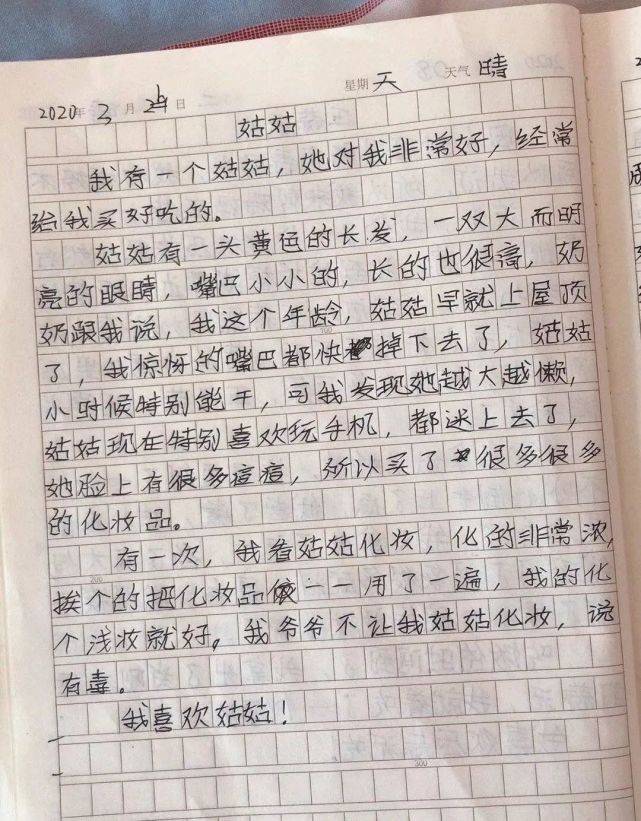 2020年 3月 29日 星期天 天气 晴
姑姑
我有一个姑姑，她对我非常好，经常
给我买好吃的。
姑姑有一头黄色的长发，一双大而明
亮的眼睛，嘴巴小小的，长的也很高，奶
奶跟我说，我这个年龄，姑姑早就上屋顶
了，我惊讶的嘴巴都快掉下去了，姑姑
小时候特别能干，可我发现她越大越懒，
姑姑现在特别喜欢玩手机，都迷上去了，
她脸上有很多痘痘，所以买了很多很多
的化妆品。
有一次，我看姑姑化妆，化的非常浓，
挨个的把化妆品一一用了一遍，我的化
个浅妆就好。我爷爷不让我姑姑化妆，说
有毒。
我喜欢姑姑！
200
300